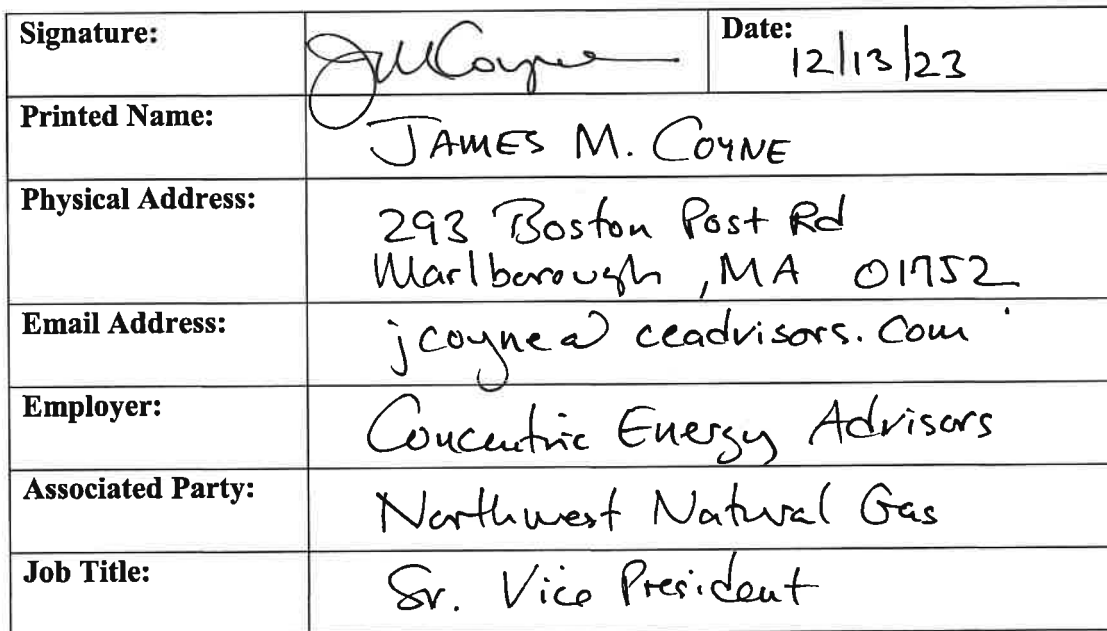 Signature: JMCoyne Date: 12/13/23
Printed Name: JAMES M. COYNE
Physical Address: 293 Boston Post Rd
Marlborough, MA 01752
Email Address: jcoyne@ceadvisors.com
Employer: Concentric Energy Advisors
Associated Party: Northwest Natural Gas
Job Title: Sr. Vice President